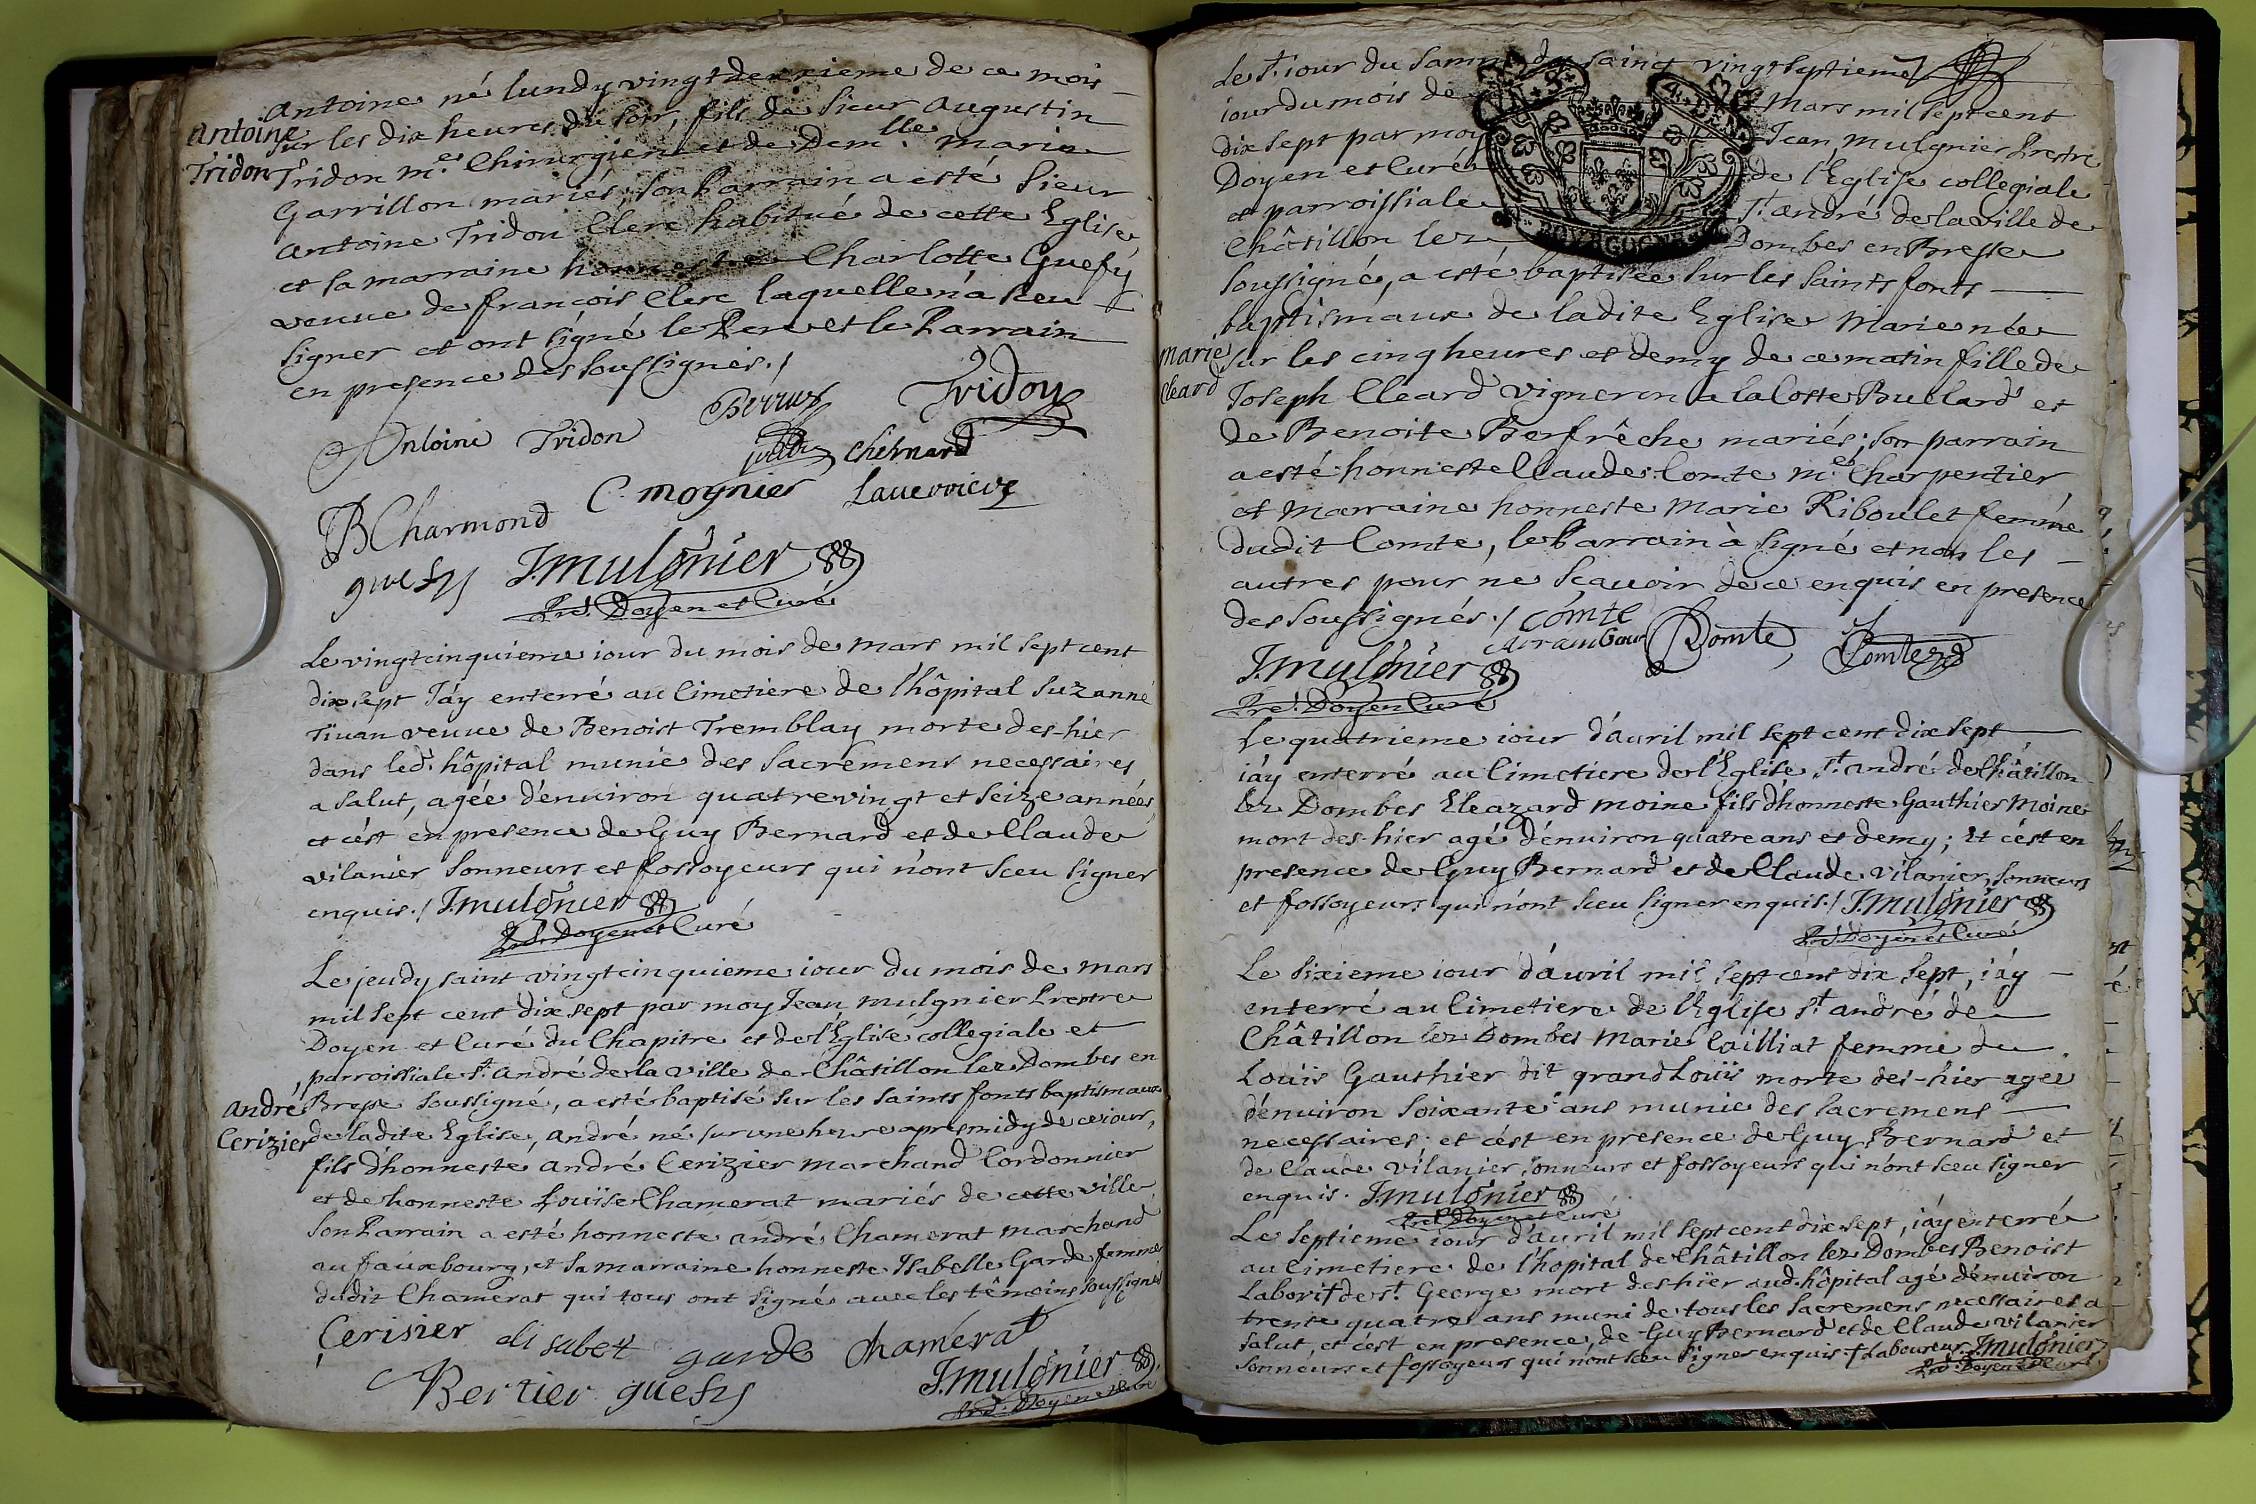 Antoine né lundy vingt deuxieme de ce mois
Antoine
Tridon
sur les dix heures du soir, fils de Sieur Augustin
Tridon me. Chirurgien et de Demlle. Marie
Garrillon mariés, son Parrain a esté Sieur
Antoine Tridon Clerc habitué de cette Eglise
et sa marraine honneste Charlotte Guefy
veuve de françois Clerc laquelle n'a sceu
signer et ont signé le Pere et le Parrain
en presence des soussignés./
Antoine Tridon Tridon
Chesnard
JB Charmond C. moynier
guefy J. mulgnier
Pre. Doyen et Curé
Le vingtcinquieme iour du mois de mars mil sept cent
dix sept J'ay enterré au Cimetiere de l'hôpital Suzanne
Tiuan veuve de Benoist Tremblay morte des-hier
dans led. hôpital munie des Sacremens necessaires
a salut, agée d'enuiron quatrevingt et seize années,
et c'est en presence de Guy Bernard et de Claude
vilanier Sonneurs et fossoyeurs qui n'ont sceu signer
enquis./ J. mulgnier
Pre. Doyen et Curé
Le jeudy saint vingtcinquieme iour du mois de mars
mil sept cent dix sept par moy Jean mulgnier Prestre
Doyen et Curé du Chapitre et de l'Eglise collegiale et
parroissiale St. André de la ville de Châtillon lez Dombes en
André
Cerizier
Bresse soussigné, a esté baptisé sur les saints fonts baptismaux
de ladite Eglise, André né sur une heure apres midy de ce iour,
fils d'honneste André Cerizier marchand Cordonnier
et de honneste Louïse Chamerat mariés de cette ville
son Parrain a esté honneste André Chamerat marchand
au fauxbourg, et sa marraine honneste Isabelle Garde femme
dudit Chamerat qui tous ont signé avec les témoins soussignés
Cerisier elisabet garde Chamérat
Bertier guefy J. mulgnier
Pre. Doyen et Curé
Le St. iour du Samedy saint vingt septieme
iour du mois de Mars mil sept cent
dix sept par moy Jean mulgnier Prestre
Doyen et Curé de l'Eglise collegiale
et parroissiale St. André de la ville de
Châtillon lez Dombes en Bresse
BOURGOGNE
soussigné, a esté baptisée sur les saints fonts
baptismaux de ladite Eglise Marie née
Marie
Cleard
sur les cinq heures et demy de ce matin fille de
Joseph Cleard vigneron a la Coste Bullard et
de Benoite Berfrêche mariés; son parrain
a esté honneste Claude Comte me. Charpentier
et Marraine honneste Marie Riboulet femme
dudit Comte, le Parrain à signé et non les
autres pour ne Scauoir de ce enquis en presence
des soussignés./ Comte
Comte, Comte
J. mulgnier
Pre. Doyen Curé
Le quatrieme iour d'auril mil sept cent dix sept
i'ay enterré au Cimetiere de l'Eglise St. André de Châtillon
lez Dombes Eleazard Moine fils d'honneste Gauthier Moine
mort des-hier agé d'enuiron quatre ans et demy; Et c'est en
presence de Guy Bernard et de Claude vilanier, Sonneurs
et fossoyeurs qui n'ont sceu signer enquis./ J. mulgnier
Pre. Doyen et Curé
Le Sixieme iour d'auril mil sept cent dix sept, i'ay
enterré au Cimetiere de l'Eglise St. André de
Châtillon lez Dombes Marie Cailliat femme de
Louïs Gauthier dit grand Louïs morte des-hier agée
d'enuiron soixante ans munie des sacremens
necessaires et c'est en presence de Guy Bernard et
de Claude vilanier Sonneurs et fossoyeurs qui n'ont sceu signer
enquis. J. mulgnier
Pre. Doyen et Curé
Le Septieme iour d'auril mil sept cent dix sept, i'ay enterré
au Cimetiere de l'hopital de Châtillon lez Dombes Benoist
Laborif de St. George mort des-hier aud. hôpital agé d'enuiron
trente quatre ans muni de tous les Sacremens necessaires a
salut, et c'est en presence de Guy Bernard et de Claude vilanier
Sonneurs et fossoyeurs qui n'ont sceu signer enquis † Laboureur J. mulgnier
Pre. Doyen et Curé